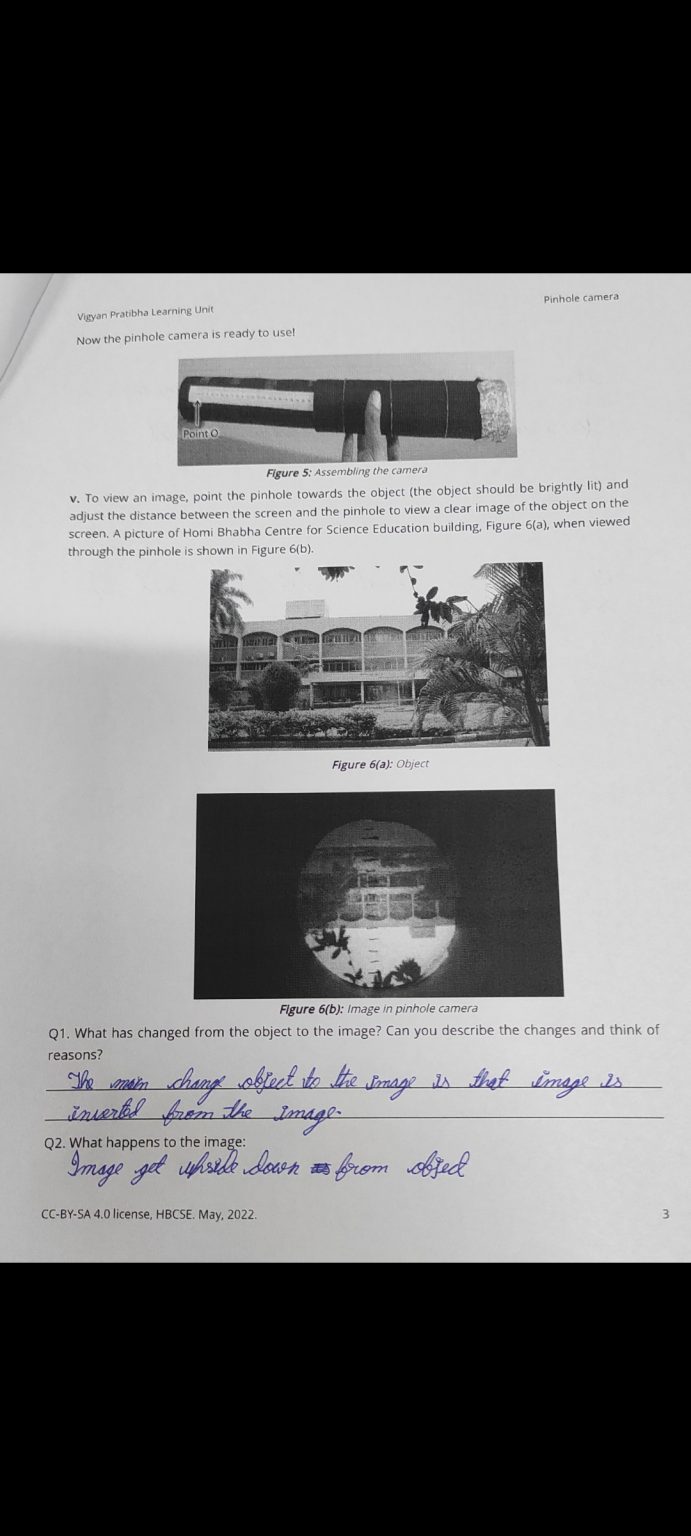 Vigyan Pratibha Learning Unit
Pinhole camera
Now the pinhole camera is ready to use!
Point O
Figure 5: Assembling the camera
v. To view an image, point the pinhole towards the object (the object should be brightly lit) and
adjust the distance between the screen and the pinhole to view a clear image of the object on the
screen. A picture of Homi Bhabha Centre for Science Education building, Figure 6(a), when viewed
through the pinhole is shown in Figure 6(b).
Figure 6(a): Object
Figure 6(b): Image in pinhole camera
Q1. What has changed from the object to the image? Can you describe the changes and think of
reasons?
The main change object to the image is that image is
inverted from the image.
Q2. What happens to the image:
Image get upside down from object
CC-BY-SA 4.0 license, HBCSE. May, 2022.
3